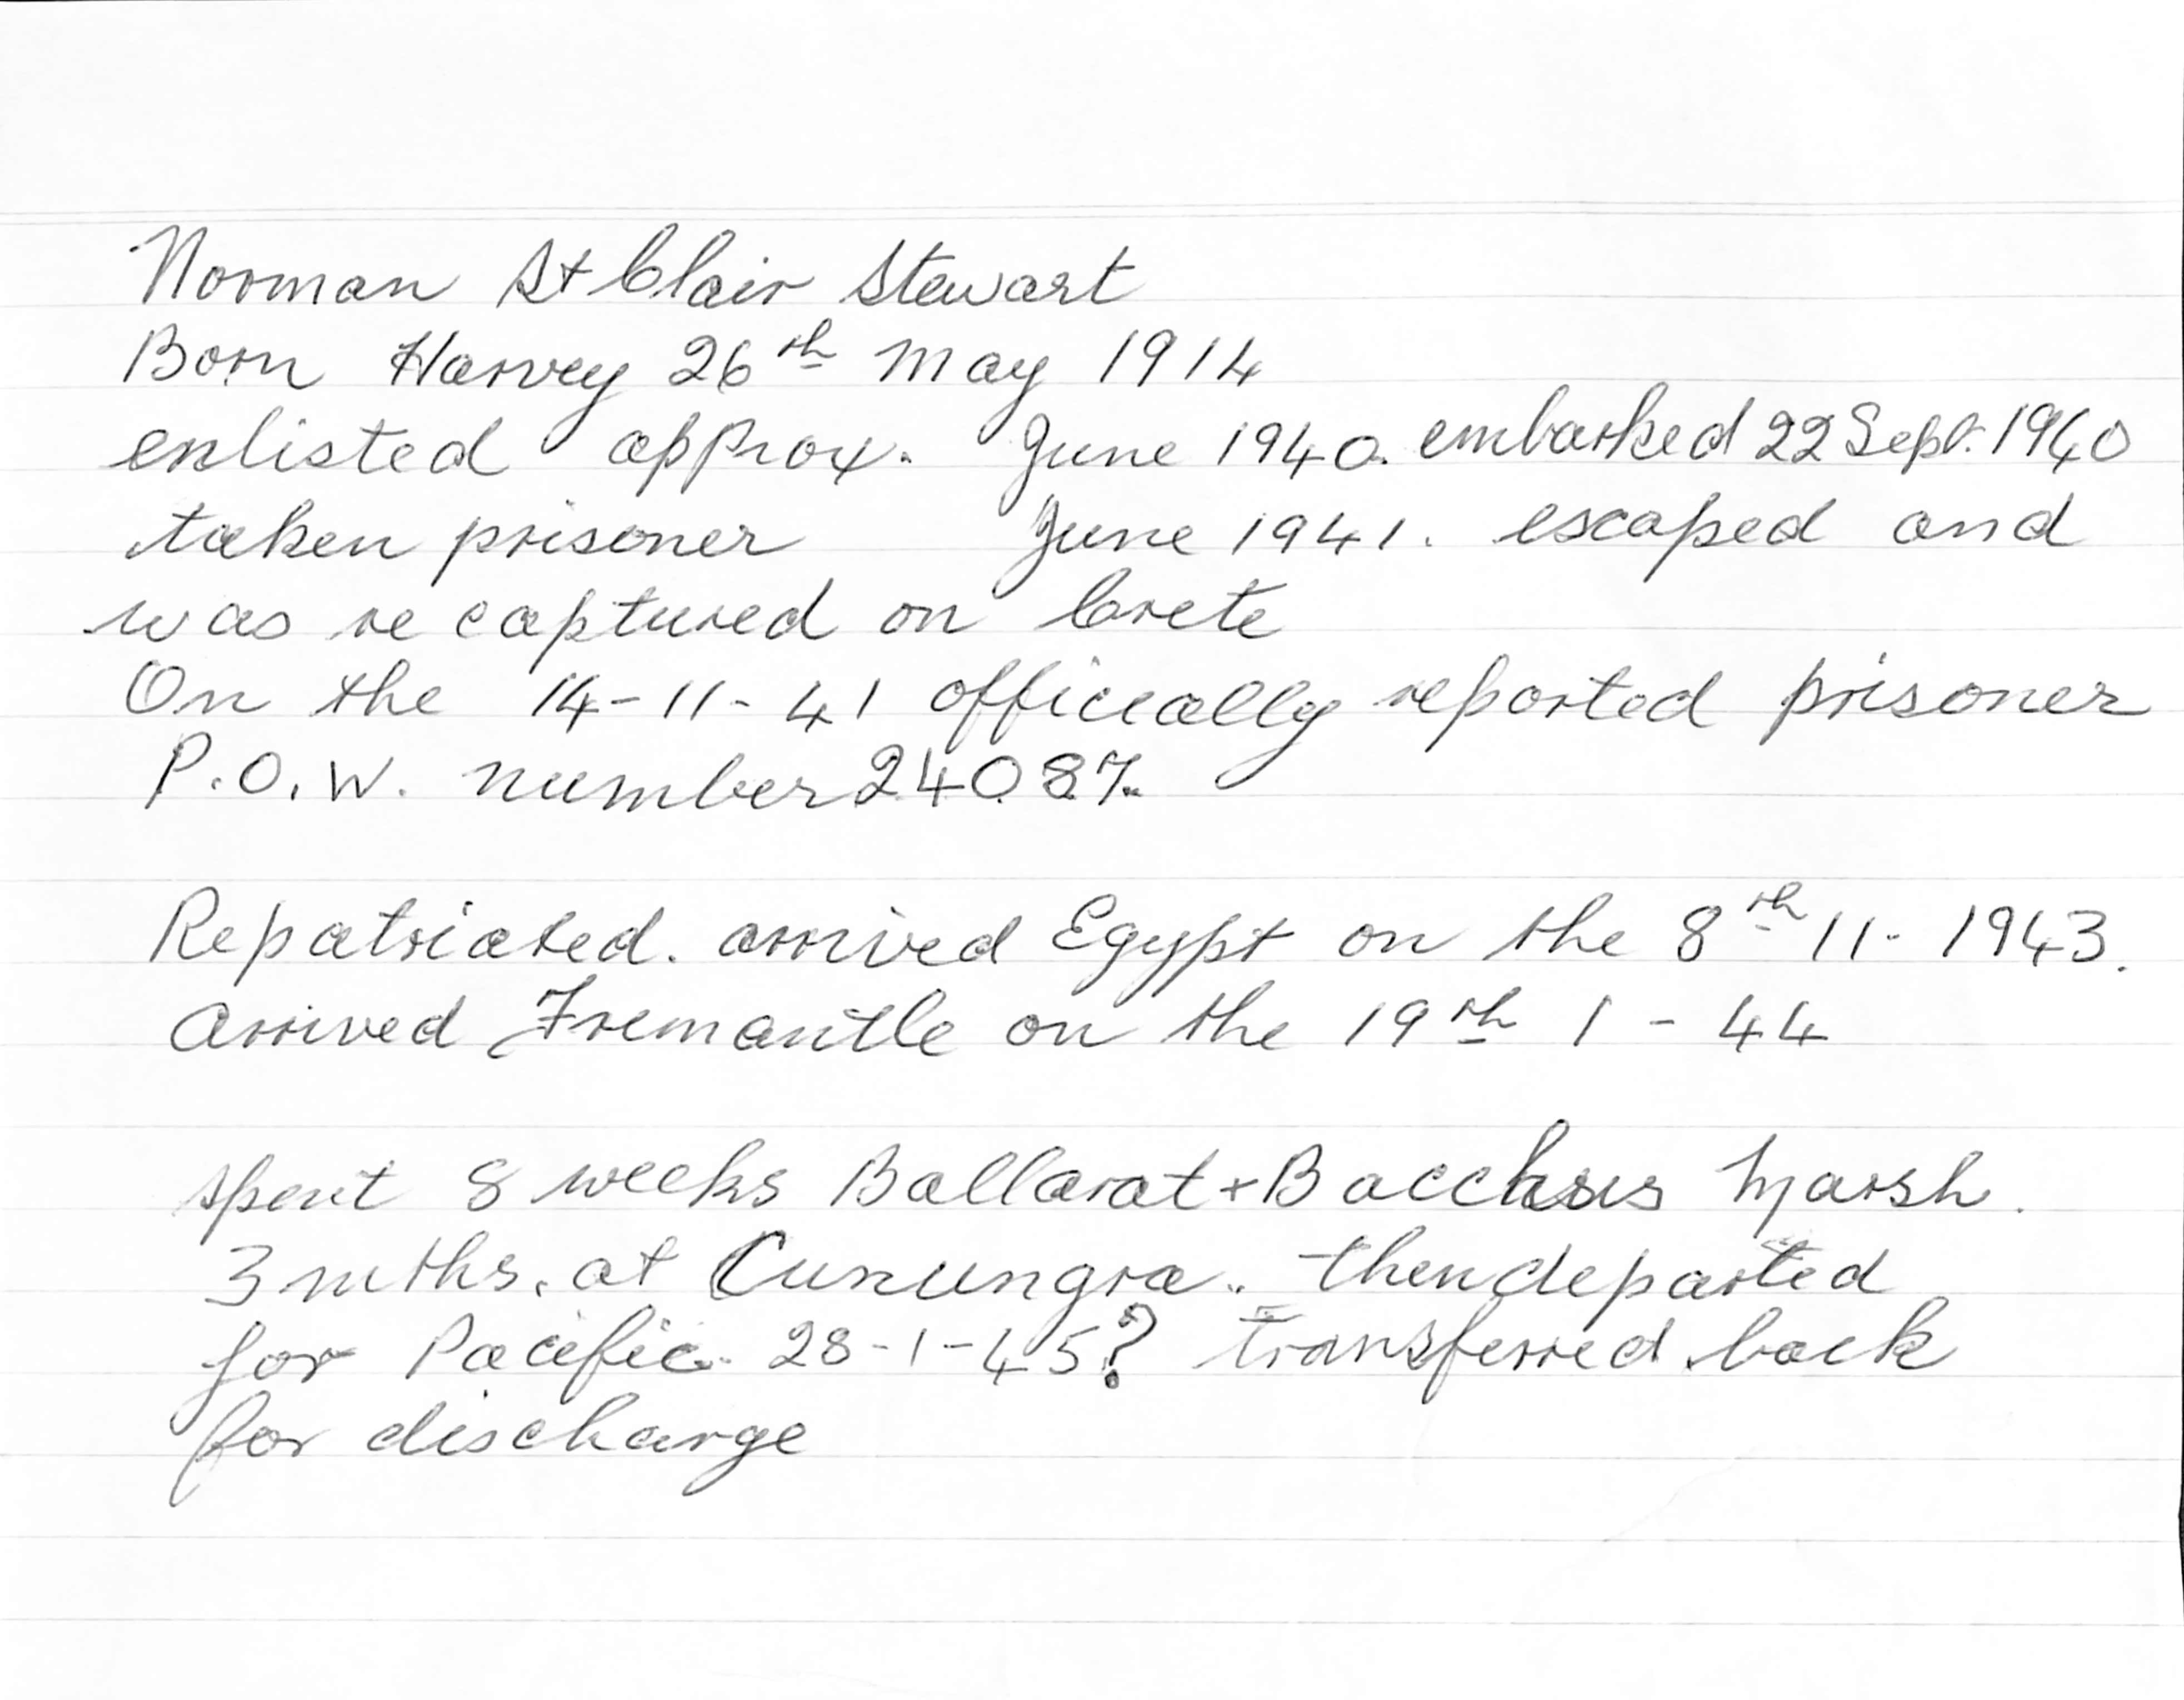 Norman St Clair Stewart
Born Harvey 26th May 1914
enlisted approx. June 1940. embarked 22 Sept. 1940
taken prisoner June 1941. escaped and
was re captured on Crete
On the 14-11-41 officially reported prisoner
P.O.W. number 24087.
Repatriated. arrived Egypt on the 8th 11-1943.
Arrived Fremantle on the 19th 1-44
spent 8 weeks Ballarat + Bacchus Marsh.
3 mths. at Cunungra. then departed
for Pacific 28-1-45? transferred back
for discharge